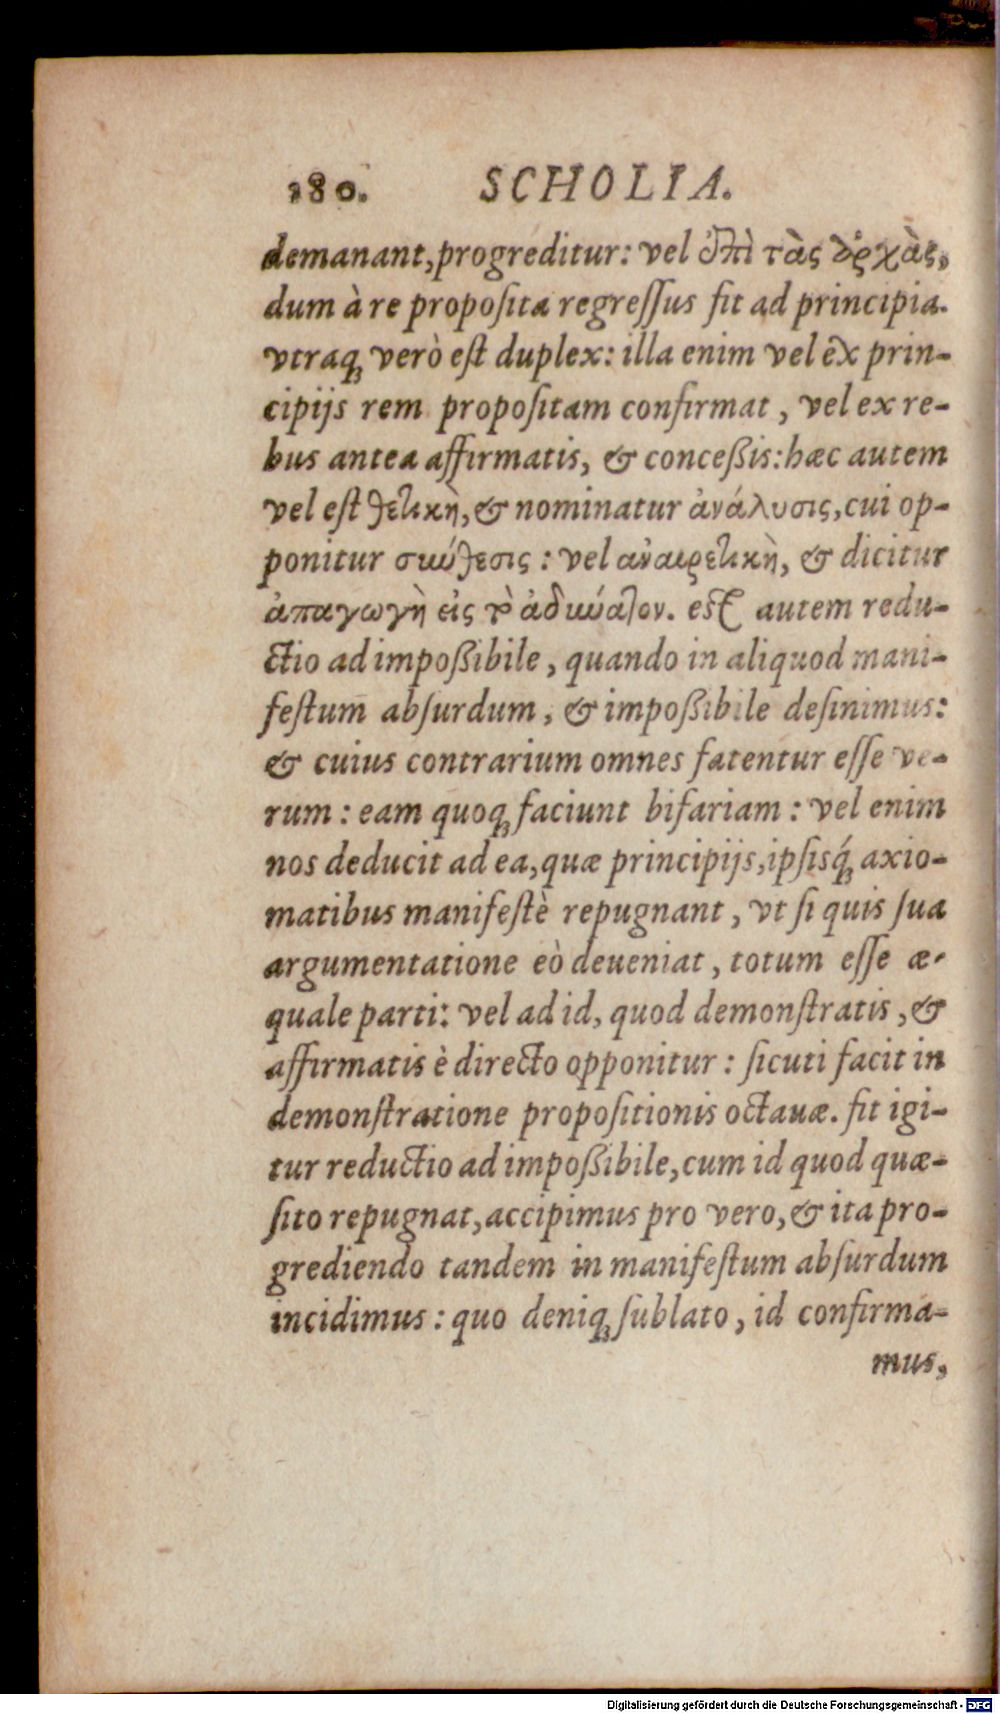 180. SCHOLIA.
demanant, progreditur: vel ἐπὶ τὰς ἀρχὰς,
dum à re proposita regreſſus fit ad principia.
vtraq; verò eſt duplex: illa enim vel ex prin-
cipijs rem propoſitam confirmat, vel ex re-
bus antea affirmatis, & conceßis: hæc autem
vel eſt θετικὴ, & nominatur ἀνάλυσις, cui op-
ponitur σύνθεσις: vel ἀναιρετικὴ, & dicitur
ἀπαγωγὴ εἰς τὸ ἀδύνατον. est autem redu-
ctio ad impoßibile, quando in aliquod mani-
feſtum abſurdum, & impoßibile deſinimus:
& cuius contrarium omnes fatentur eſſe ve-
rum: eam quoq; faciunt bifariam: vel enim
nos deducit ad ea, quæ principijs, ipſisq́; axio-
matibus manifeſtè repugnant, vt ſi quis ſua
argumentatione eò deueniat, totum eſſe æ-
quale parti: vel ad id, quod demonſtratis, &
affirmatis è directo opponitur: ſicuti facit in
demonſtratione propoſitionis octauæ. fit igi-
tur reductio ad impoßibile, cum id quod quæ-
ſito repugnat, accipimus pro vero, & ita pro-
grediendo tandem in manifeſtum abſurdum
incidimus: quo deniq; ſublato, id confirma-
mus,
Digitalisierung gefördert durch die Deutsche Forschungsgemeinschaft - DFG